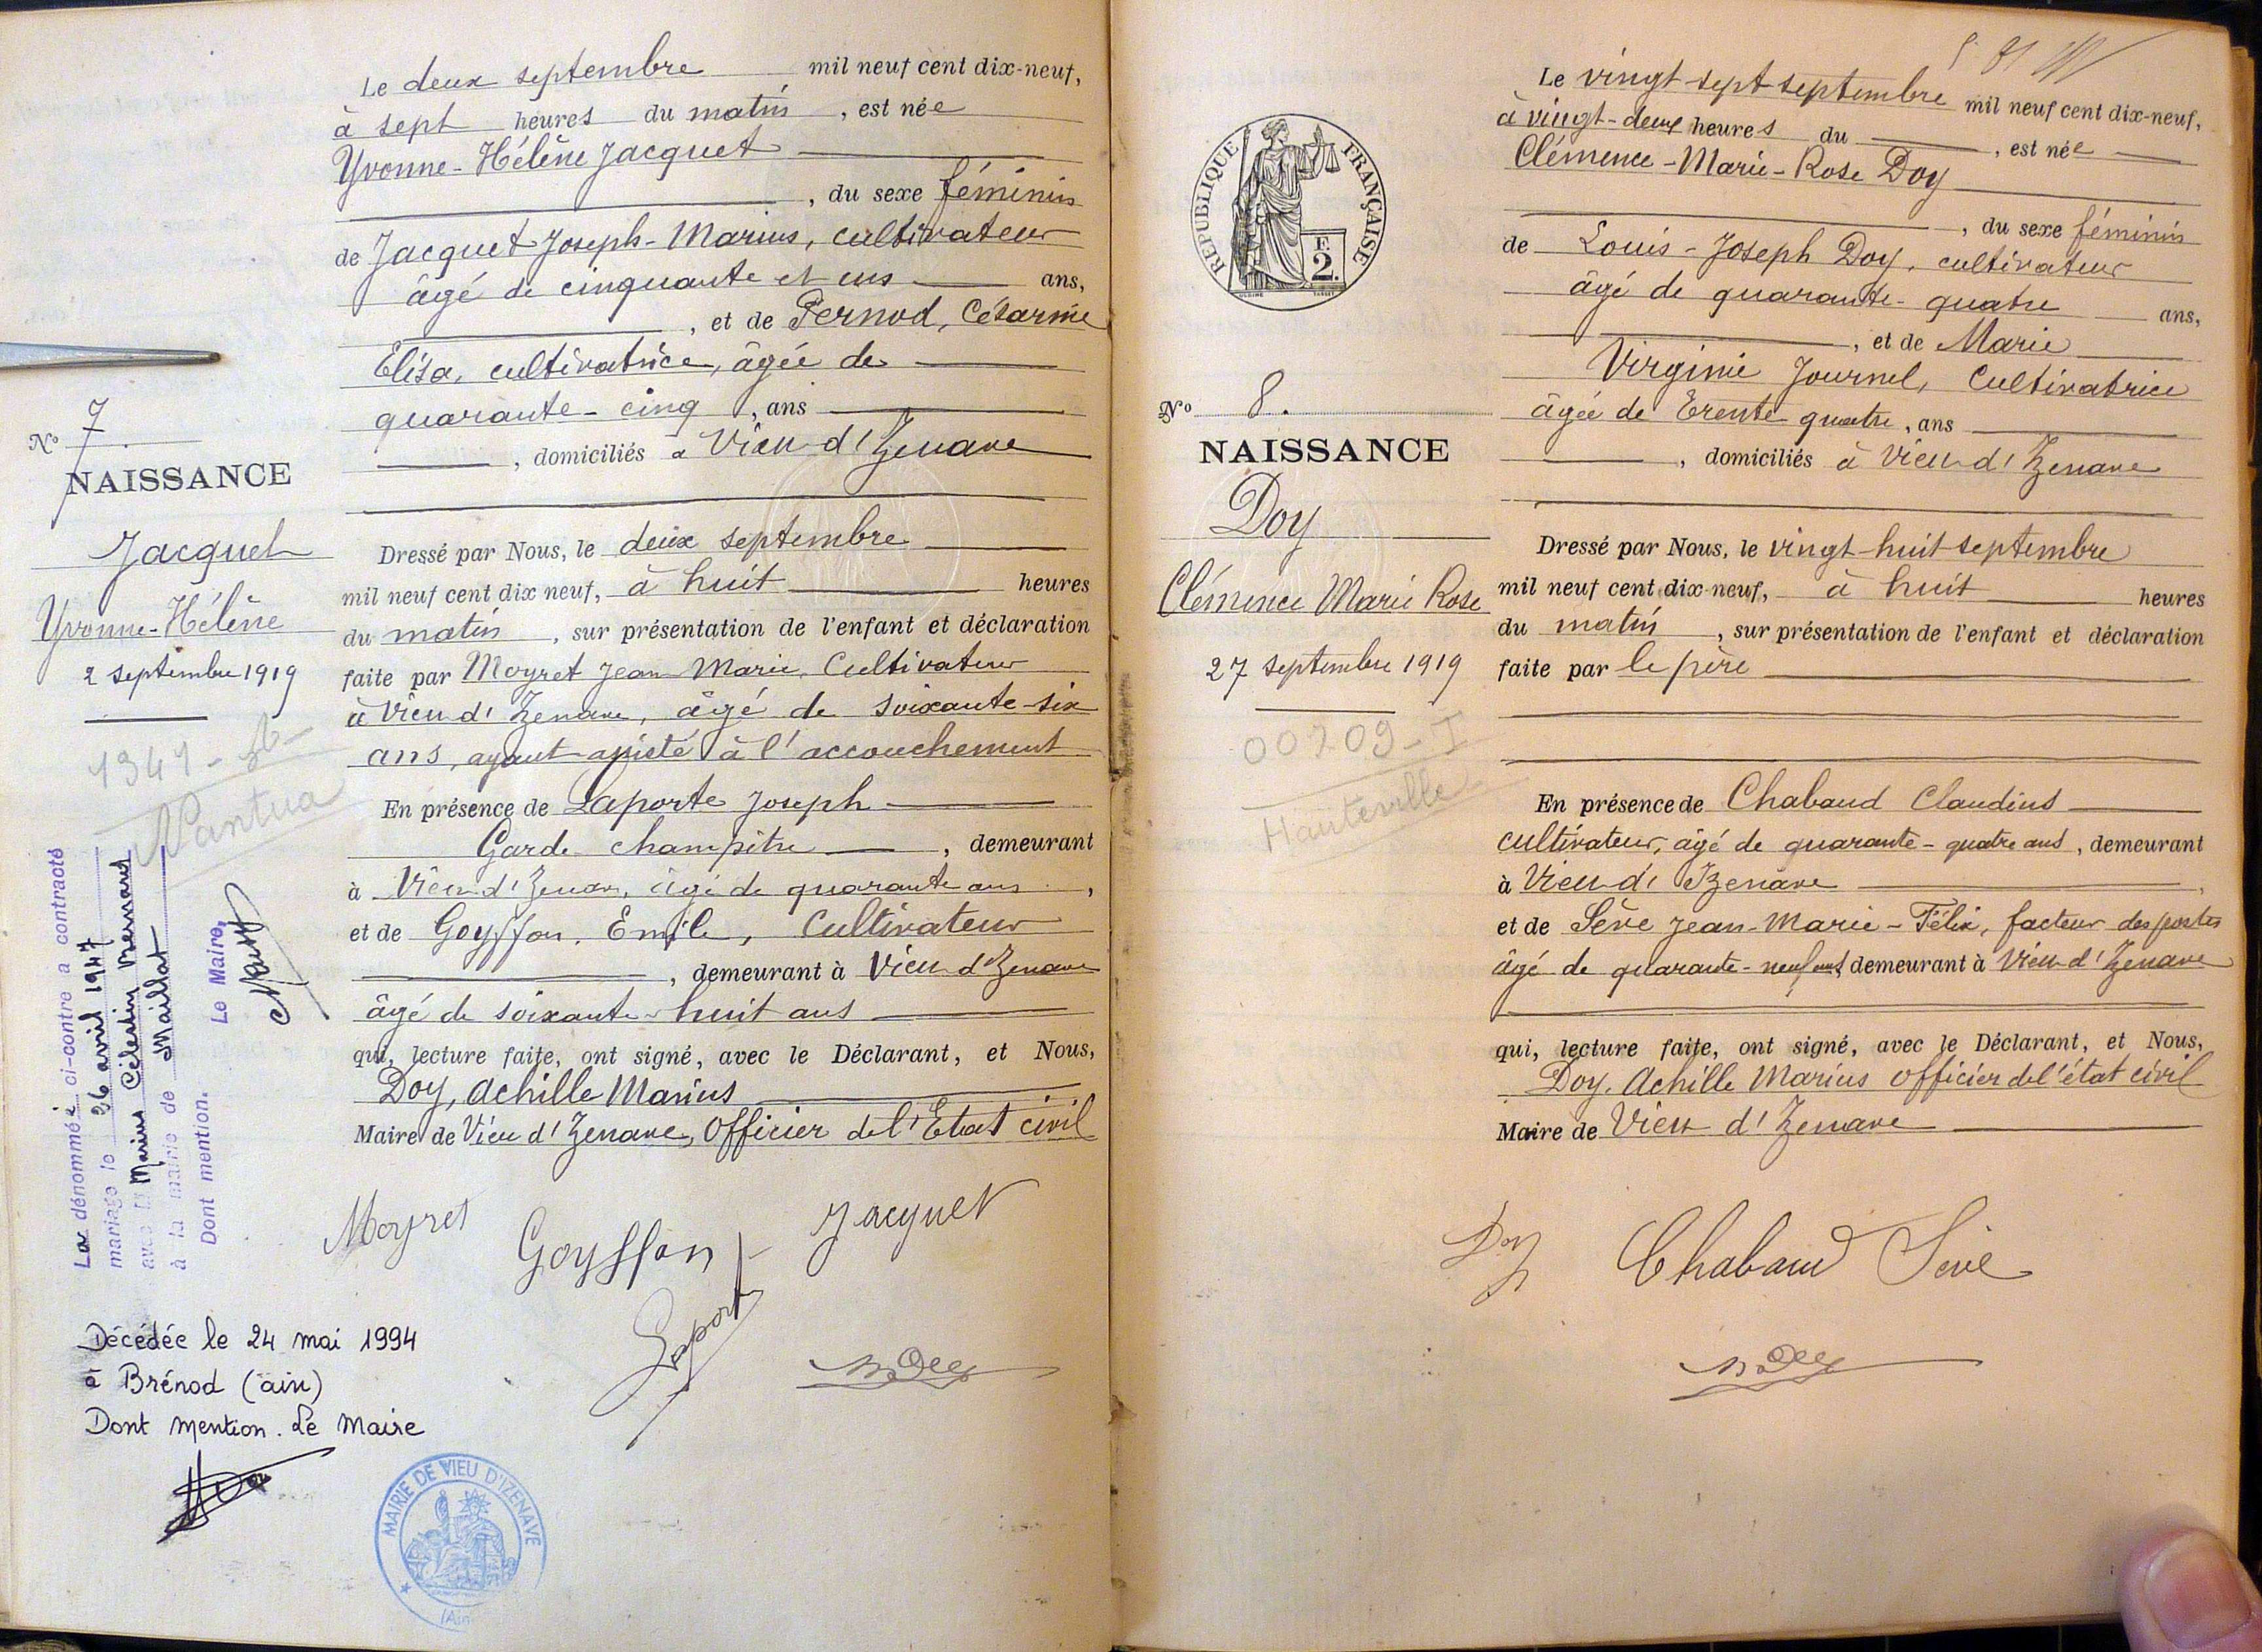 Le deux septembre mil neuf cent dix-neuf,
à sept heures du matin, est née
Yvonne-Hélène Jacquet
, du sexe féminin
de Jacquet Joseph-Marius, cultivateur
âgé de cinquante et un ans,
, et de Pernod, Césarine
Elisa, cultivatrice, âgée de
quarante-cinq, ans
, domiciliés à Vieu-d'Izenave
N° 7
NAISSANCE
Jacquet
Yvonne-Hélène
2 septembre 1919
1341-36
Nantua
Dressé par Nous, le deux septembre
mil neuf cent dix neuf, à huit heures
du matin, sur présentation de l'enfant et déclaration
faite par Moyret Jean Marie, Cultivateur
à Vieu d'Izenave, âgé de soixante-six
ans, ayant assisté à l'accouchement
En présence de Laporte Joseph
Garde champêtre, demeurant
à Vieu d'Izenave, âgé de quarante ans,
et de Goyffon, Emile, Cultivateur
, demeurant à Vieu d'Izenave
âgé de soixante-huit ans
qui, lecture faite, ont signé, avec le Déclarant, et Nous,
Doy, Achille Marius
Maire de Vieu d'Izenave, Officier de l'Etat civil
Moyret Goyffon Jacquet
Laporte
La dénommée ci-contre a contracté
mariage le 26 avril 1947
avec M Marius Célestin Bernard
à la mairie de Maillat
Dont mention. Le Maire,
Décédée le 24 mai 1994
à Brénod (ain)
Dont mention. Le Maire
MAIRIE DE VIEU D'IZENAVE
(Ain)
RÉPUBLIQUE FRANÇAISE
F.
2.
N° 8.
NAISSANCE
Doy
Clémence Marie Rose
27 septembre 1919
00209-I
Hauteville
Le vingt-sept septembre mil neuf cent dix-neuf,
à vingt-deux heures du, est née
Clémence-Marie-Rose Doy
, du sexe féminin
de Louis-Joseph Doy, cultivateur
âgé de quarante-quatre ans,
, et de Marie
Virginie Journel, Cultivatrice
âgée de trente quatre, ans
, domiciliés à Vieu-d'Izenave
Dressé par Nous, le vingt-huit septembre
mil neuf cent dix-neuf, à huit heures
du matin, sur présentation de l'enfant et déclaration
faite par le père
En présence de Chabaud Claudius
cultivateur, âgé de quarante-quatre ans, demeurant
à Vieu-d'Izenave
et de Sève Jean-Marie-Félix, facteur des postes
âgé de quarante-neuf ans demeurant à Vieu-d'Izenave
qui, lecture faite, ont signé, avec le Déclarant, et Nous,
Doy. Achille Marius officier de l'état civil
Maire de Vieu d'Izenave
Doy Chabaud Sève